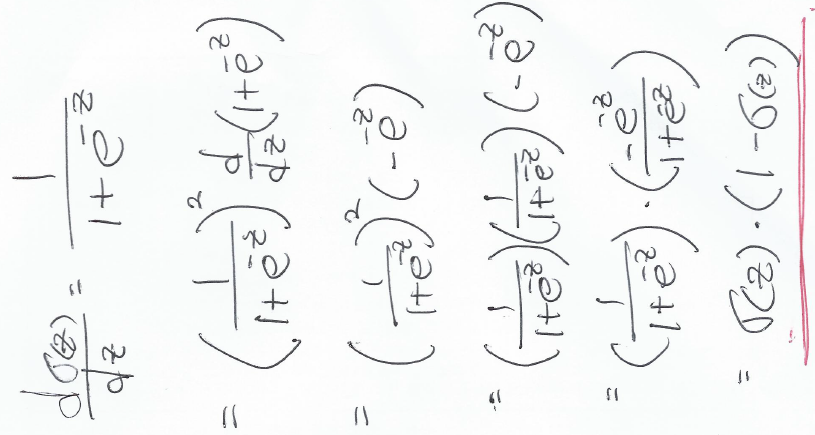 dσ(z)/dz = 1/(1+e^-z)
= (1/(1+e^-z))^2 d/dz (1+e^-z)
= (1/(1+e^-z))^2 (-e^-z)
= (1/(1+e^-z))(1/(1+e^-z))(-e^-z)
= (1/(1+e^-z)) · (-e^-z/(1+e^-z))
= σ(z) · (1-σ(z))